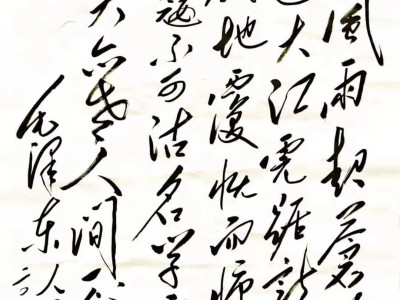 風雨起蒼
大江虎踞龍
地覆慨而慷
寇不可沽名学
天亦老人間
毛澤东